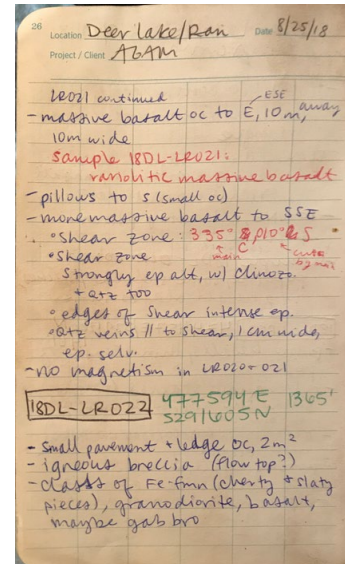 26
Location Deer Lake/Ran Date 8/25/18
Project / Client AGAM
LR021 continued
ESE
- massive basalt oc to E, 10 m, away
10m wide
Sample 18DL-LR021:
variolitic massive basalt
- pillows to S (small oc)
- more massive basalt to SSE
• Shear zone: 335° 010°
main C
• Shear zone
Strongly ep alt, w/ clinozo.
+ Qtz too
• edges of Shear intense ep.
• Qtz veins // to shear, 1 cm wide,
ep. selv.
- no magnetism in LR020 + 021
18DL-LR022 477594 E 1365'
5291605 N
- Small pavement + ledge oc, 2m²
- igneous breccia (flow top?)
- clasts of Fe-fmn (cherty + slaty
pieces), granodiorite, basalt,
maybe gabbro